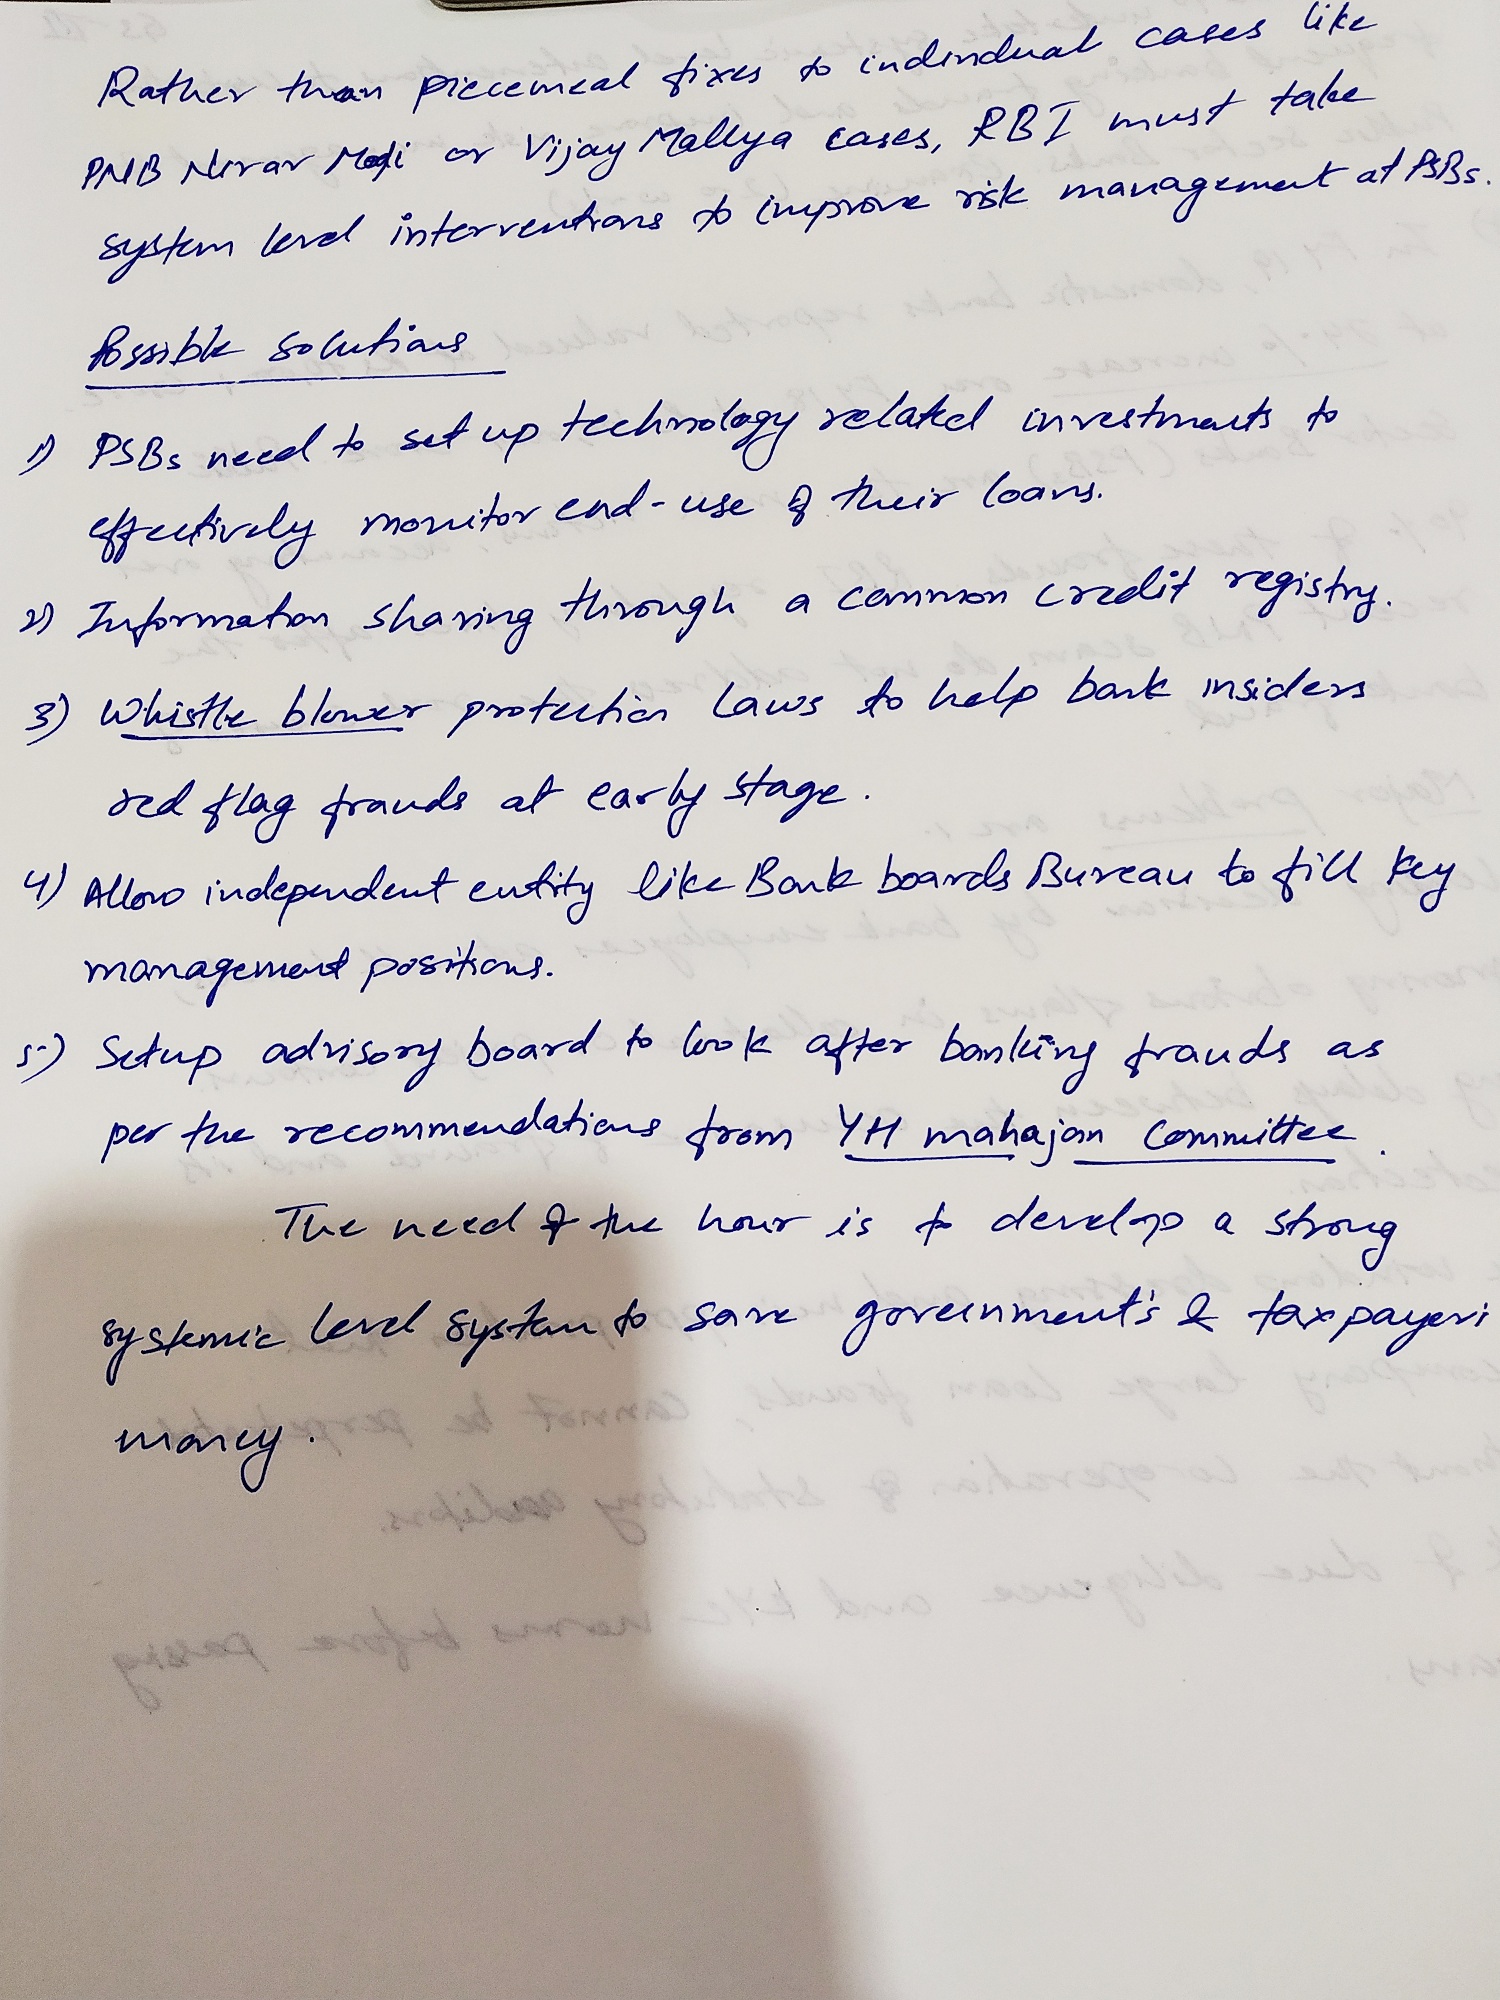 Rather than piecemeal fixes to individual cases like
PNB Nirav Modi or Vijay Mallya cases, RBI must take
system level interventions to improve risk management at PSBs.
Possible solutions
1) PSBs need to set up technology related investments to
effectively monitor end-use of their loans.
2) Information sharing through a common credit registry.
3) Whistle blower protection laws to help bank insiders
red flag frauds at early stage.
4) Allow independent entity like Bank boards Bureau to fill key
management positions.
5) Setup advisory board to look after banking frauds as
per the recommendations from YH mahajan Committee.
The need of the hour is to develop a strong
systemic level system to save government's & taxpayer's
money.